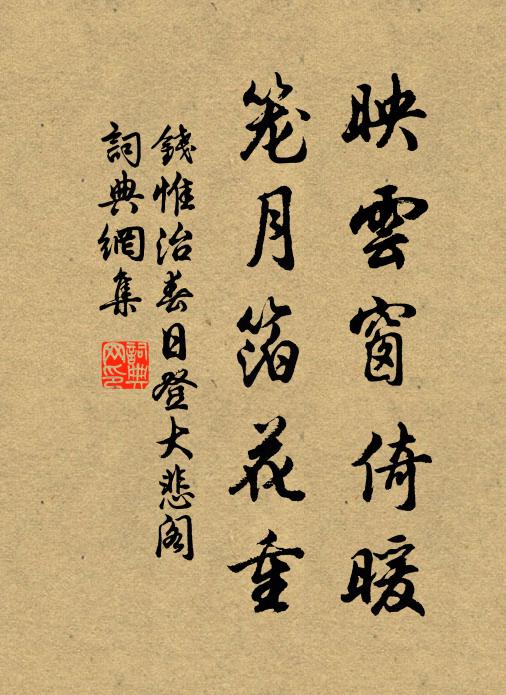 映雲窗倚暖
笼月箔花重
錢惟治春日登大悲阁
詞典網集
詞典
网印